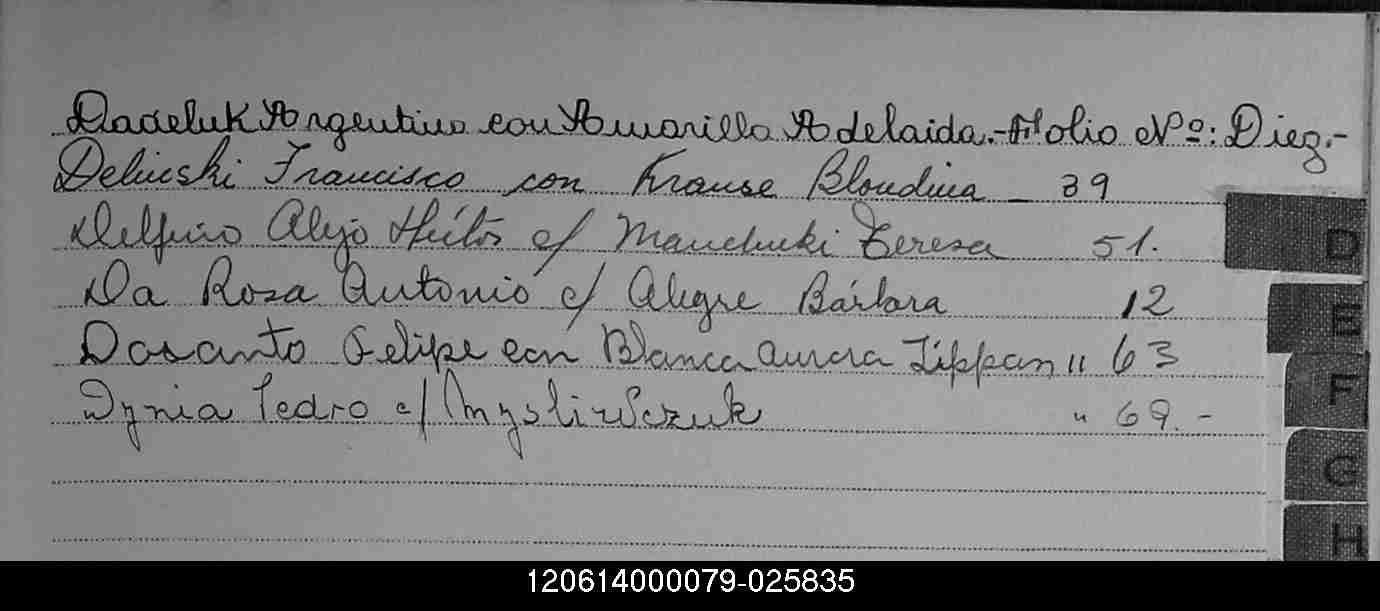 Dadeluk Argentino con Amarilla Adelaida.- Folio Nº: Diez.-
Delinski Francisco con Krause Blondina _ 39
Delfino Alejo Héctor c/ Manchuki Teresa 51.
Da Rosa Antonio c/ Alegre Bárbara 12
Dosanto Felipe con Blanca Aurora Lippan " 63
Dynia Pedro c/ Mysliwczuk " 69.-
D
E
F
G
H
120614000079-025835